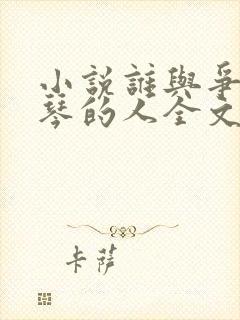 小說誰與爭
琴的人全文
卡薩